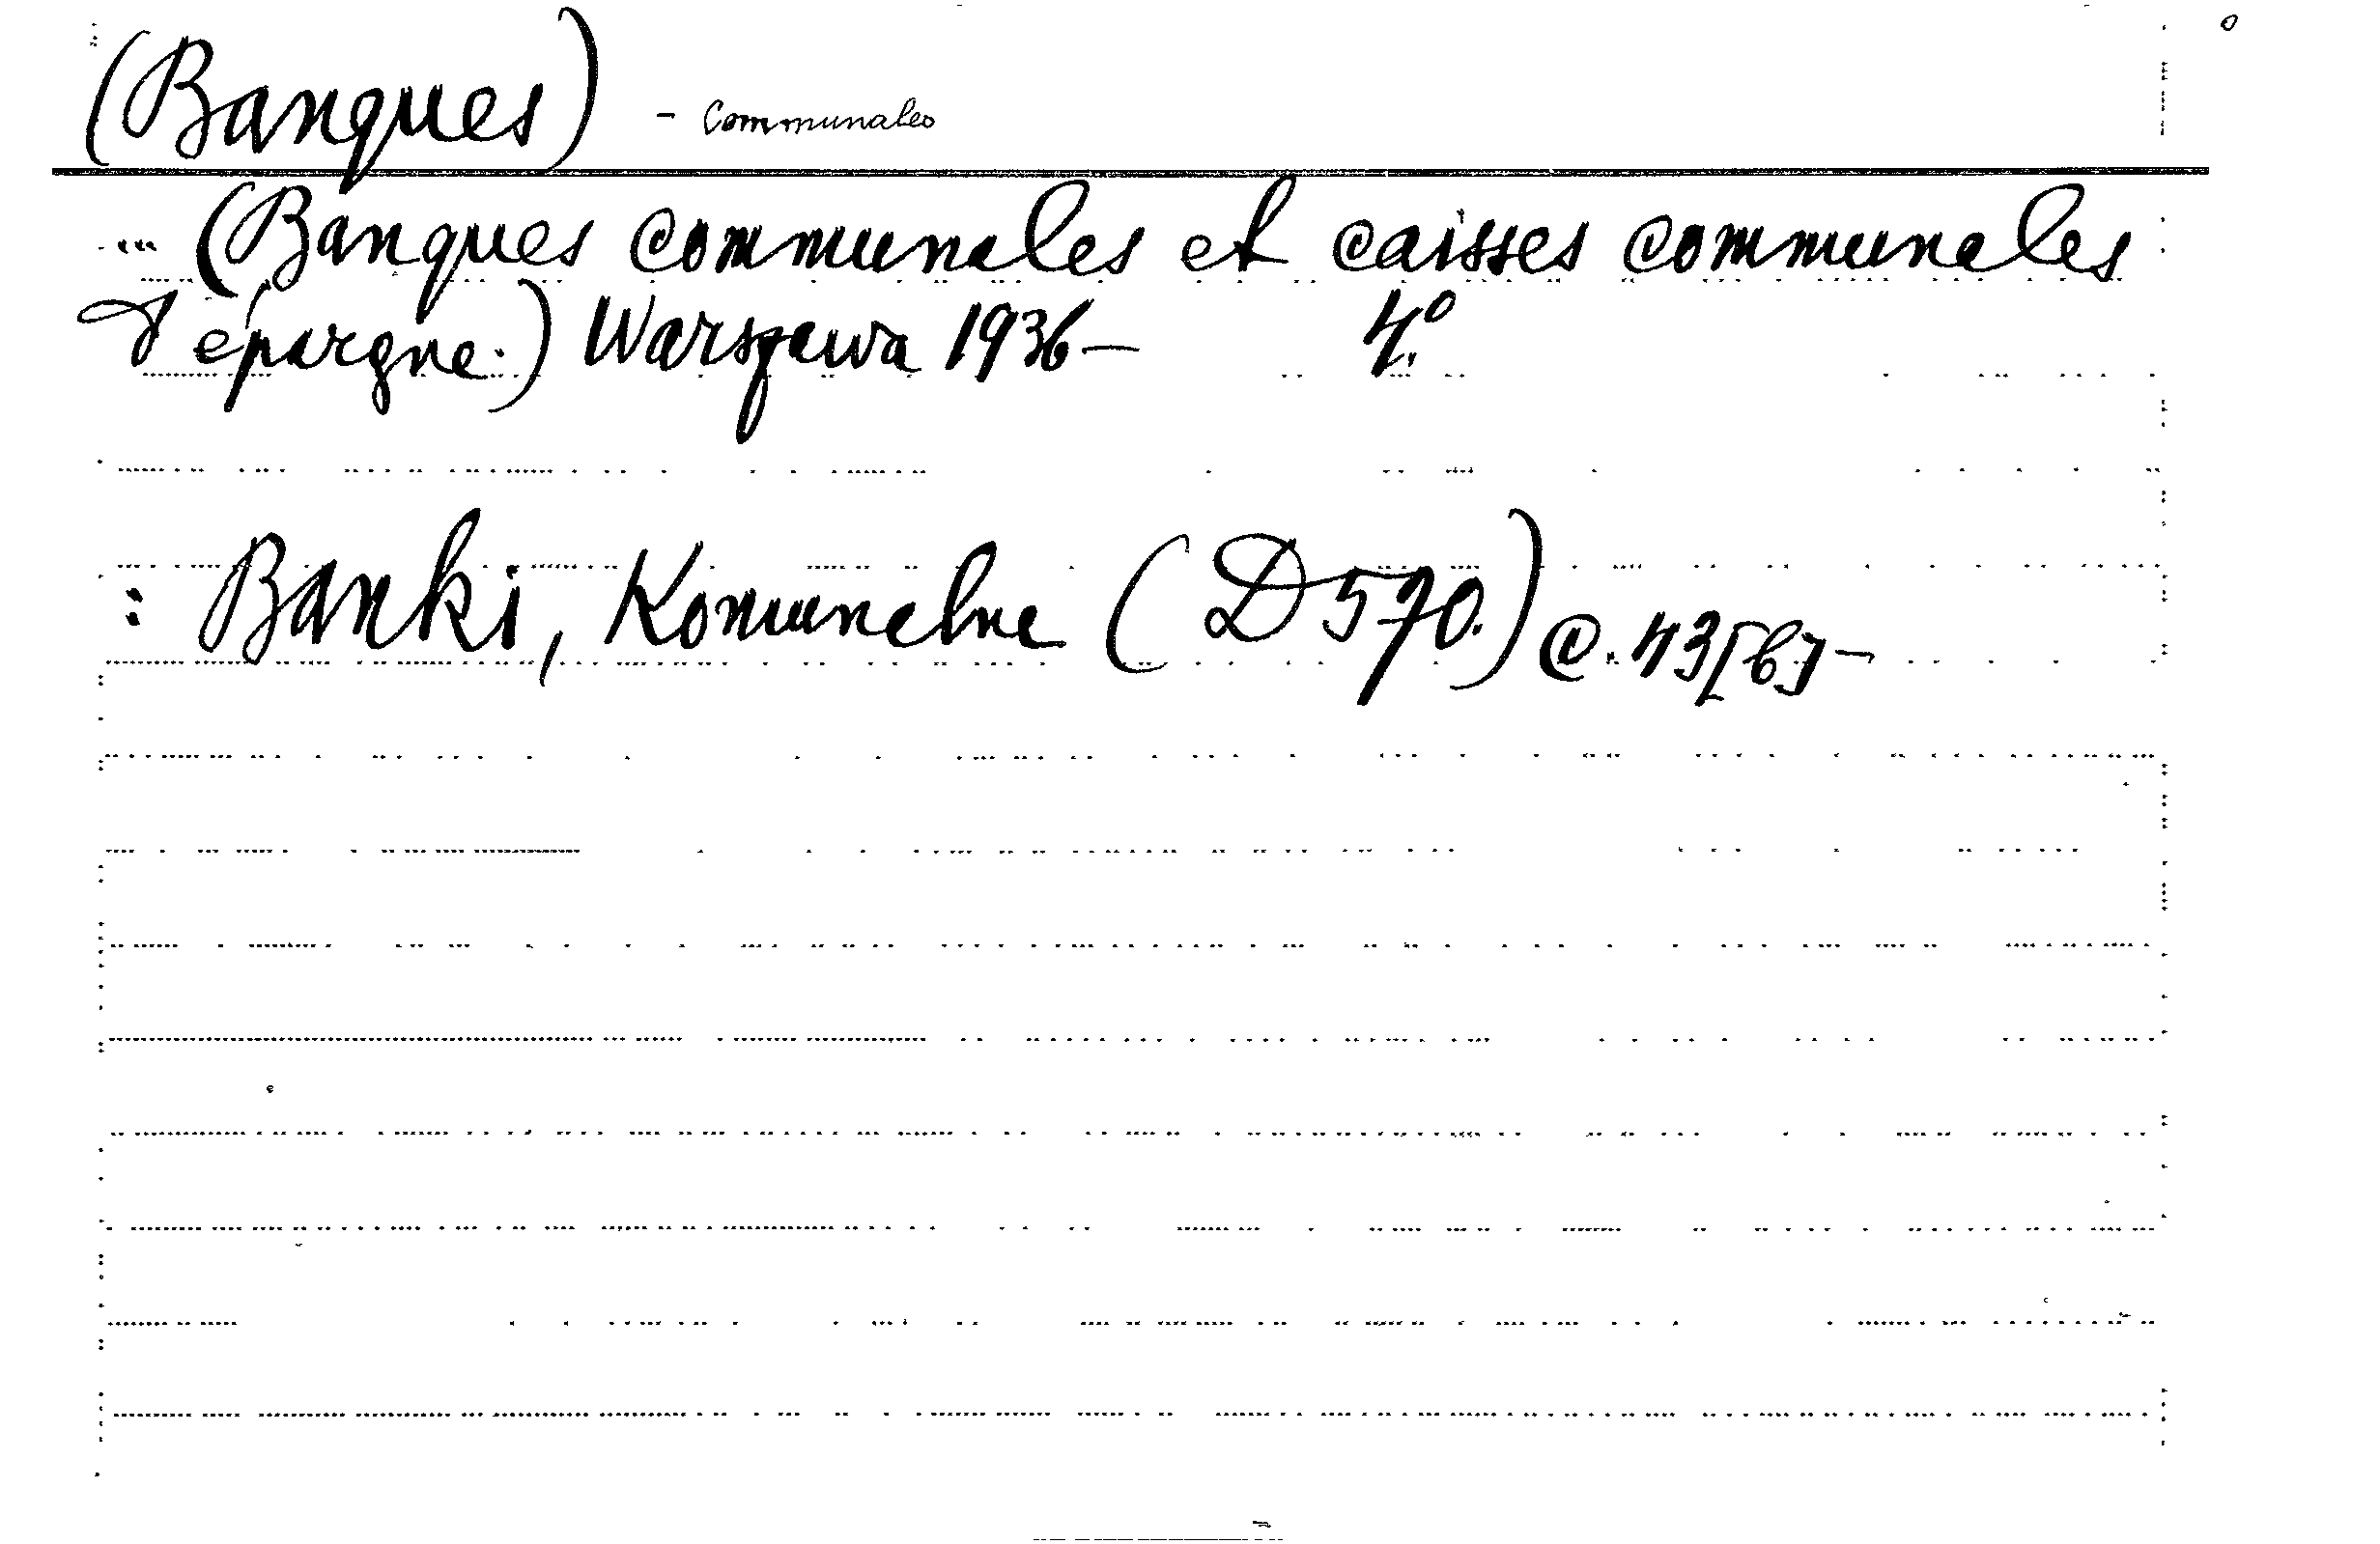 (Banques) - Communales
... (Banques communales et caisses communales
d'épargne.) Warszawa 1936- 4.º
: Banki, Komunalne (D 570.) C. 43[6]-